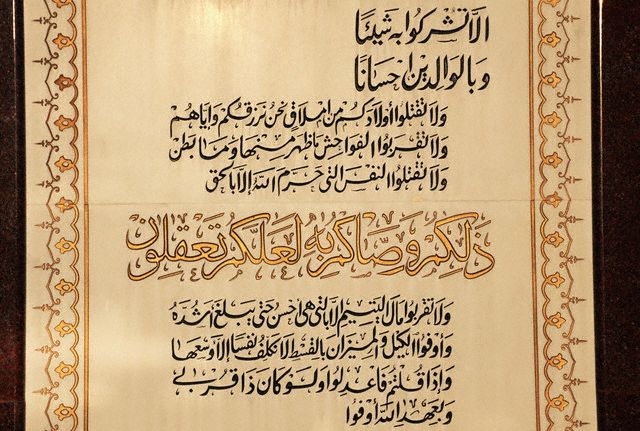 الا تشركوا به شيئا
وبالوالدين احسانا
ولا تقتلوا أولادكم من إملاق نحن نرزقكم وإياهم
ولا تقربوا الفواحش ما ظهر منها وما بطن
ولا تقتلوا النفس التي حرم الله إلا بالحق
ذلكم وصاكم به لعلكم تعقلون
ولا تقربوا مال اليتيم إلا بالتي هي احسن حتى يبلغ اشده
وأوفوا الكيل والميزان بالقسط لا نكلف نفسا إلا وسعها
وإذا قلتم فاعدلوا ولو كان ذا قربى
وبعهد الله أوفوا